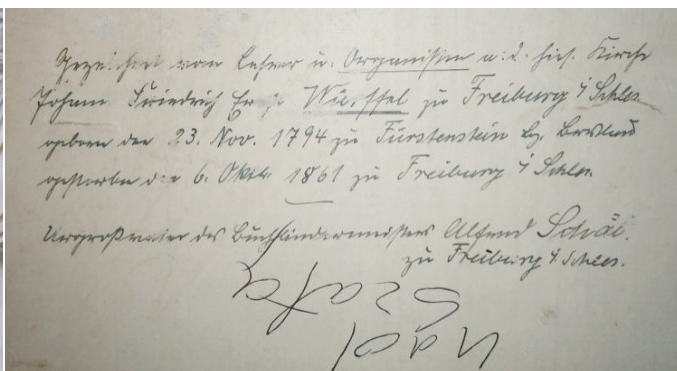 Gezeichnet vom Lehrer u. Organisten a. d. hies. Kirche
Johann Friedrich Würffel zu Freiburg i/Schles.
geboren den 23. Nov. 1794 zu Fürstenstein bz. Breslau
gestorben den 6. Oktb. 1861 zu Freiburg i/Schles.
Urgroßvater des Buchbindermeisters Alfred
zu Freiburg i/Schles.
nad
szafa